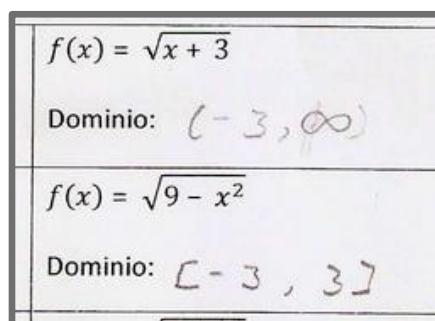 f(x) = √(x + 3)
Dominio: (-3, ∞)
f(x) = √(9 - x²)
Dominio: [-3, 3]